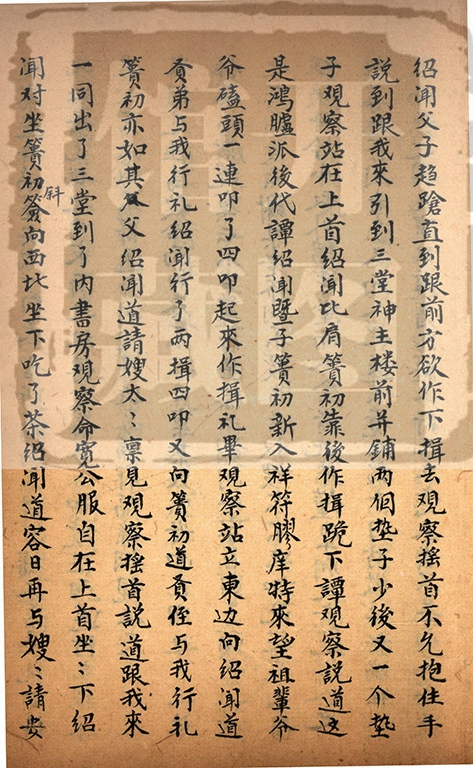 绍闻父子趋跄直到跟前方欲作下揖去观察摇首不允抱住手
說到跟我來引到三堂神主楼前并鋪两個垫子少後又一个垫
子观察站在上首绍闻比肩簣初靠後作揖跪下譚观察説道这
是鴻臚派後代譚绍闻暨子簣初新入祥符膠庠特來望祖輩爷
爷磕頭一連叩了四叩起來作揖礼畢观察站立東边向绍闻道
贡弟与我行礼绍闻行了两揖四叩又向簣初道贡侄与我行礼
簣初亦如其父绍闻道請嫂太〻禀見观察摇首説道跟我來
一同出了三堂到了内書房观察命寛公服自在上首坐〻下绍
闻对坐簣初簽斜向西北坐下吃了茶绍闻道容日再与嫂〻請安